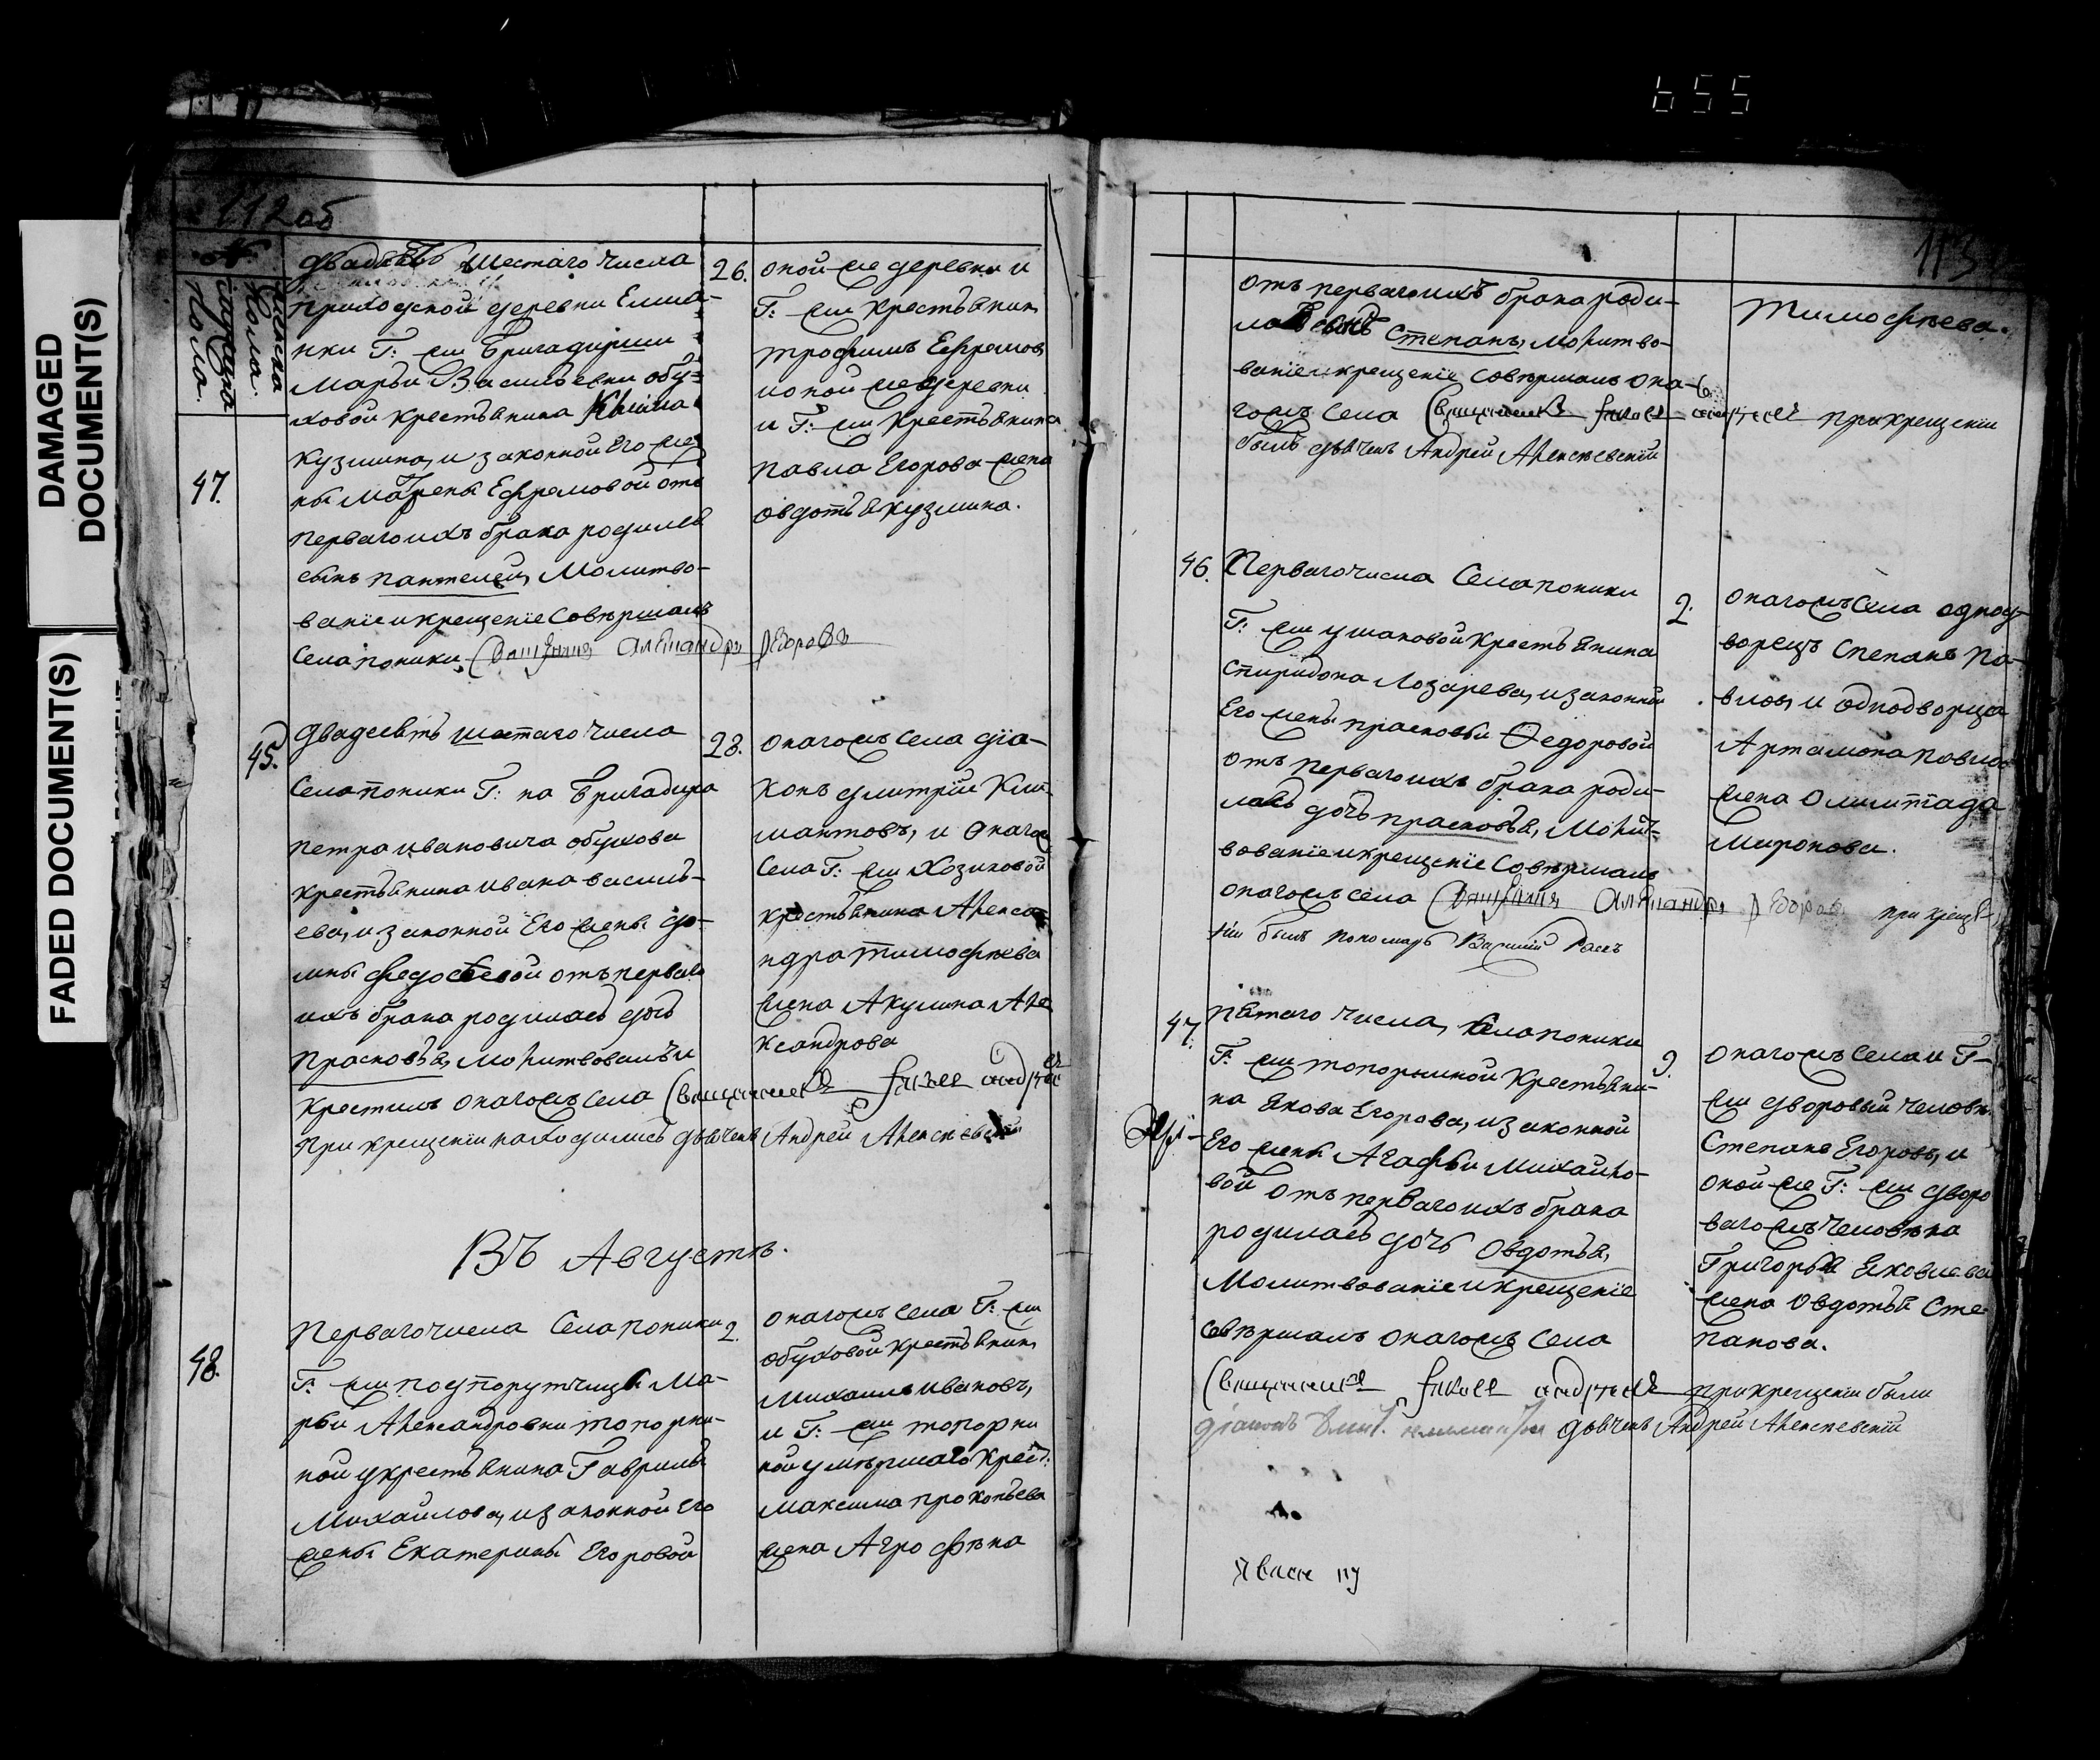 655
DAMAGED
DOCUMENT(S)
FADED DOCUMENT(S)
112 об
№
мужска
пола
женска
пола.
47.
двадесять шестаго числа
приходской деревни
нки Г: жи Бригадирши
Марьи Васильевны обу=
ховой крестьянина
Кузмина, и законной Его же
ны Марены Ефремовой отъ
перваго ихъ брака родился
сынъ пантелей, Молитво-
ваніе и крещеніе Совѣршалъ
села поники
26.
оной же деревни и
Г: жи крестьянинъ
трофимъ Ефремовъ
и оной же деревни
и Г: жи крестьянина
павла Егорова жена
овдотья кузмина.
45.
Двадесять шестаго числа
Села Поники Г: на Бригадира
петра ивановича обухова
крестьянина ивана василь-
ева, и законной Его жены до-
мны федосѣевой отъ перваго
ихъ брака родилась дочь
прасковья, молитвовалъ и
крестилъ онагожъ села
При крещеніи находились дьячекъ Андрей Алексѣевскій
28.
онагожъ села діа-
конъ дмитрій Кли
мантовъ, и онаго
Села Г: жи Хозиковой
крестьянина Алекса
ндра тимофѣева
жена Акулина Але
ксандрова
ВЪ Августѣ.
48.
Перваго числа Села поники
Г: жи подпорутчицы Ма-
рьи Александровны топорни-
ной укрестьянина Гаврилы
Михайлова, и законной Его
жены Екатерины Егоровой
2.
онагожъ села Г: жи
обуховой крестьянинъ
Михаила ивановъ,
и Г: жи топорни
ной умѣршаго крест:
максима прокопьева
жена Агрофѣна
113
отъ перваго ихъ брака роди-
лся сынъ Степанъ, молитво-
ваніе и крещеніе совѣршалъ она-
гожъ села
при крещеніи
былъ дьячекъ Андрей Алексѣевскій
тимофѣева.
46.
Перваго числа Села поники
Г: жи ушаковой крестьянина
Спиридона Лозарева, и законной
Его жены прасковьи Федоровой
отъ перваго ихъ брака роди-
лась дочь прасковья, Молит-
вованіе и крещеніе Совѣршалъ
онагожъ села
при креще
ніи былъ пономарь
2.
онагожъ села однод
ворецъ степанъ па-
вловъ, и однодворца
Артамона павлов
жена олимпіада
миронова.
47.
пятаго числа, села поники
Г: жи топорниной крестьяни-
на Якова Егорова, и законной
Его жены Агафьи Михайло-
вой отъ перваго ихъ брака
родилась дочь Овдотья,
Молитвованіе и крещеніе
совѣршалъ онагожъ села
при крещеніи были
дьячекъ Андрей Алексѣевскій
9.
онагожъ села и Г-
жи дворовый человѣкъ
Степанъ Егоровъ, и
оной же Г: жи дворо
вагожъ человѣка
Григорья Яковлева
жена овдотья Сте
панова.